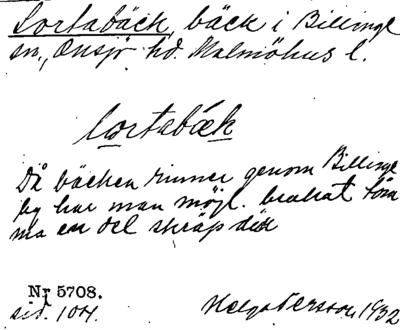 Lortabäck, bäck i Billinge
sn., Onsjö hd. Malmöhus l.
lortabäk
Då bäcken rinner genom Billinge
by har man möjl. brukat töm
ma en del skräp dit
Nr 5708.
sid. 104. Helge Persson, 1932